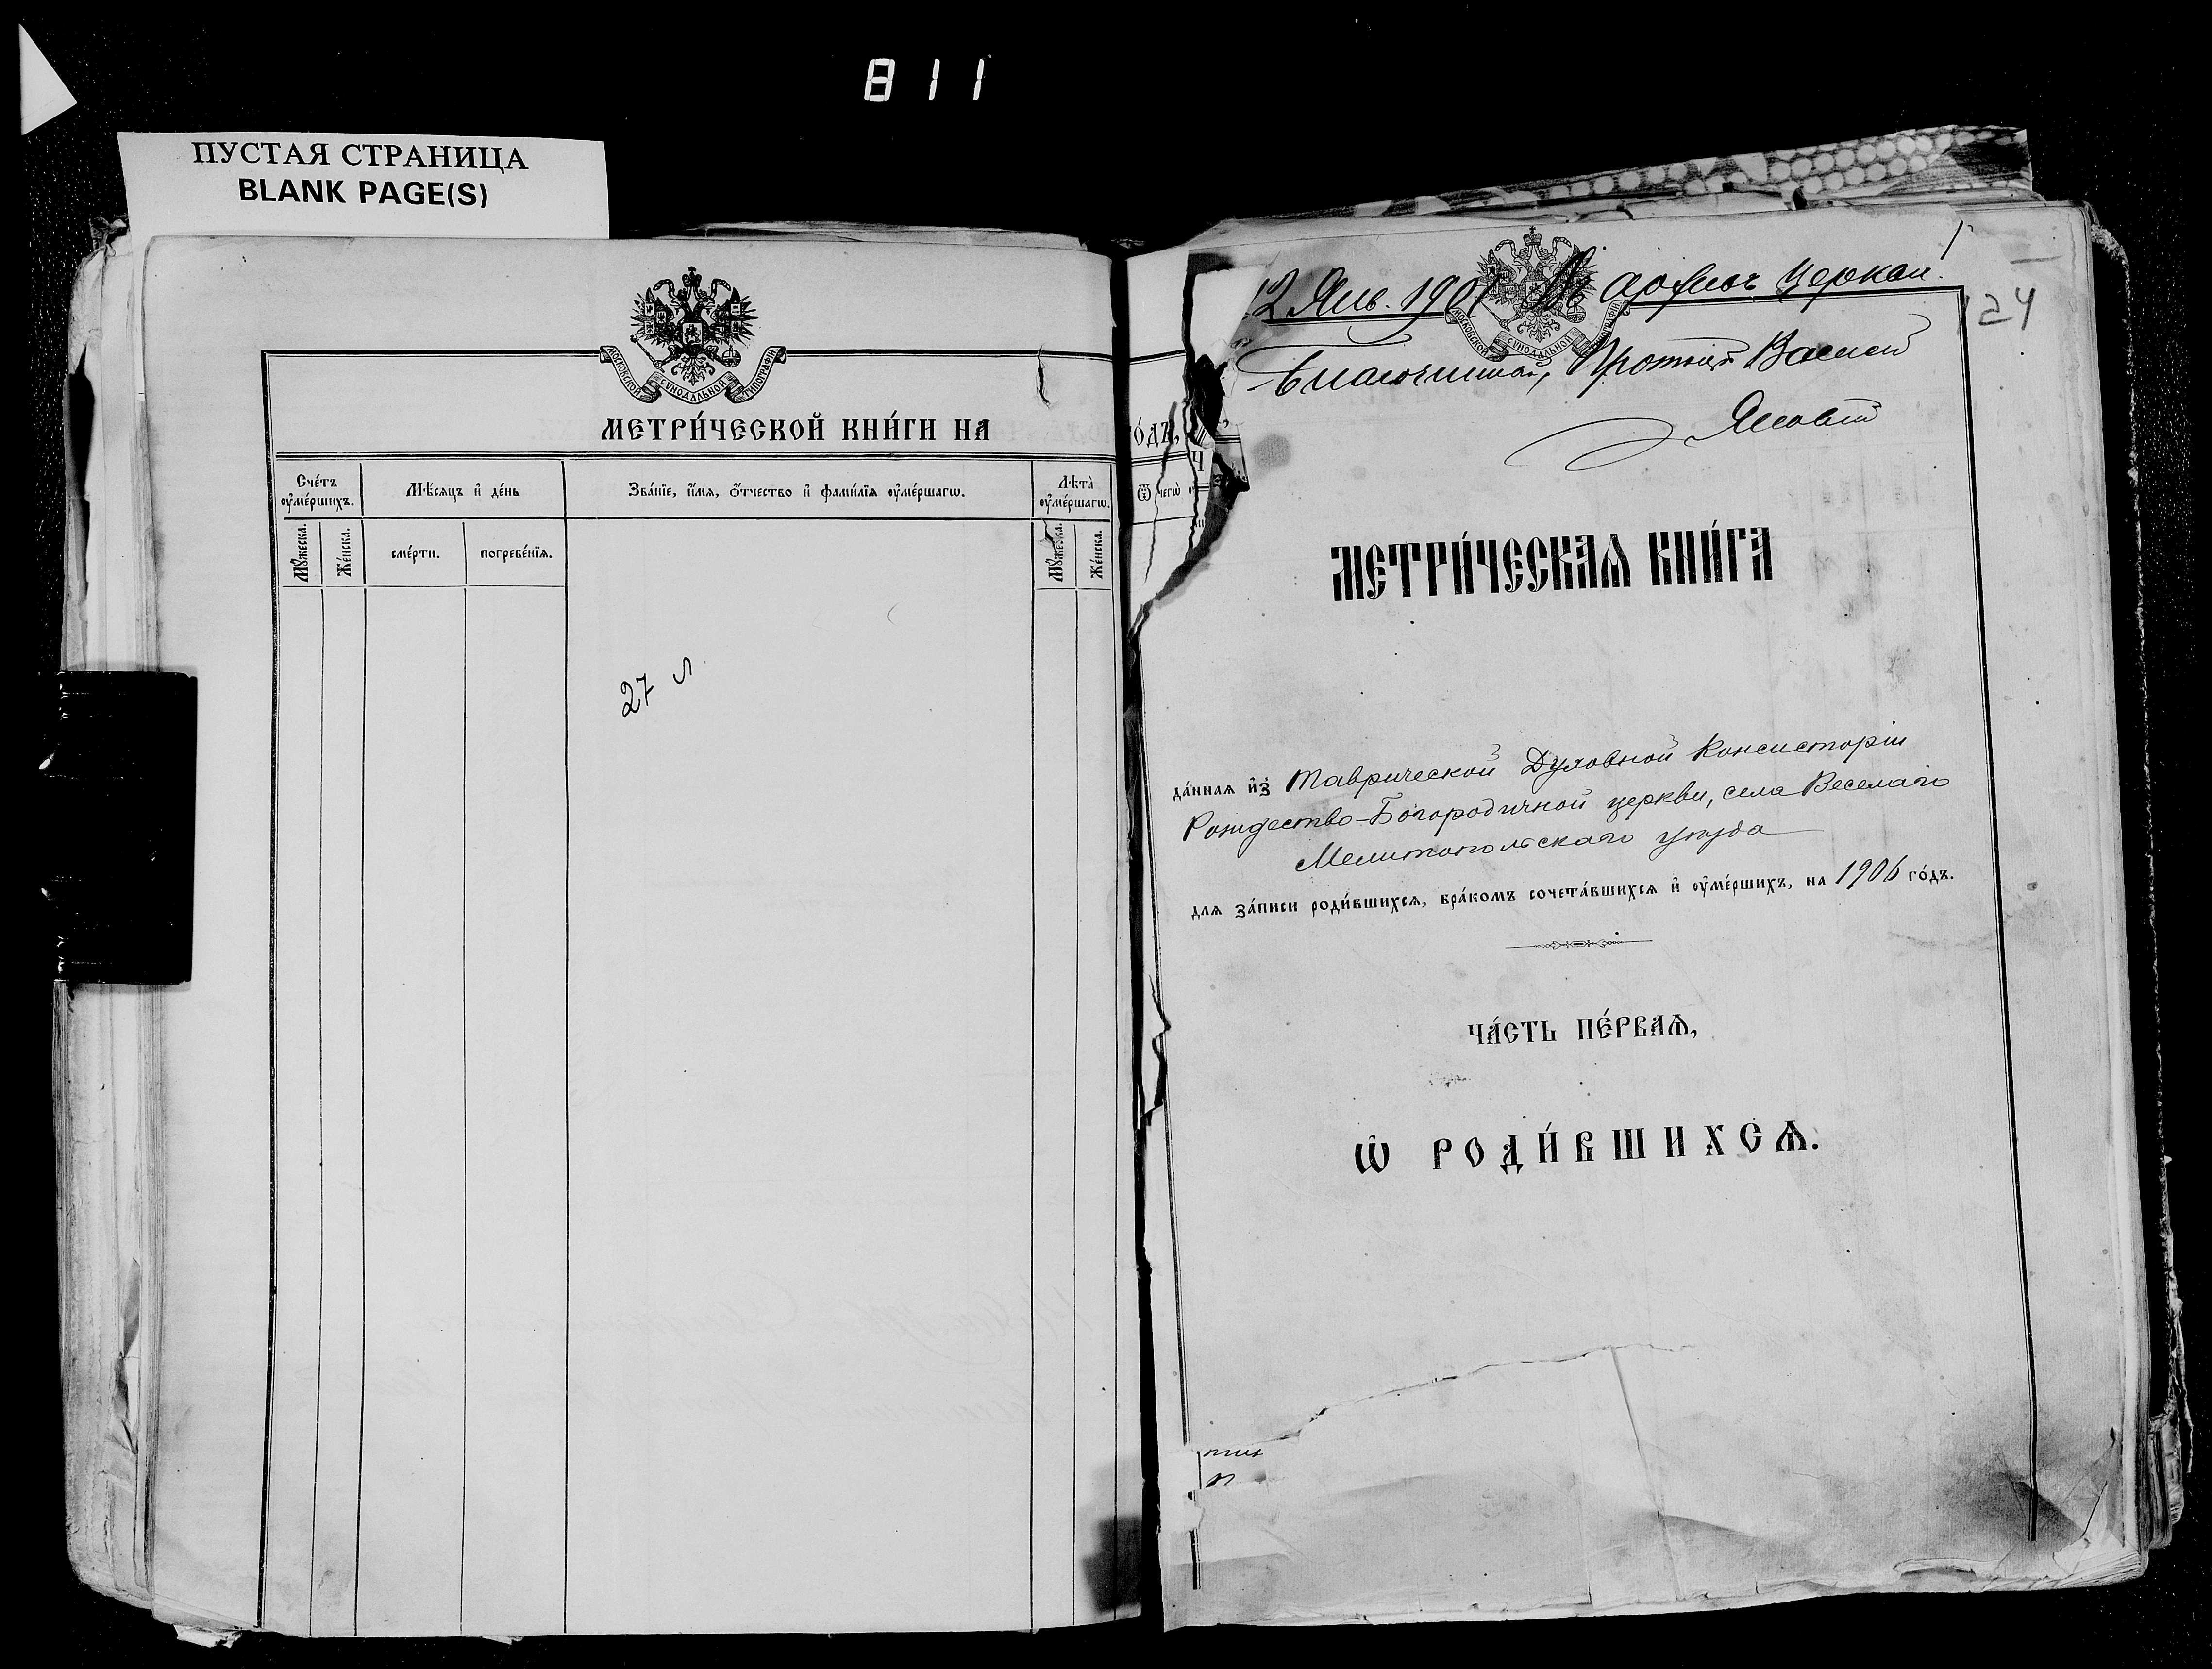 811
ПУСТАЯ СТРАНИЦА
BLANK PAGE(S)
МОСКОВСКОЙ СѴНОДАЛЬНОЙ ТИПОГРАФІИ
МЕТРИ́ЧЕСКОЙ КНИ́ГИ НА
Сче́тъ ᲂу҆ме́ршихъ.
Мѣсяцъ и҆ де́нь
Зва́нїе, и҆́мя, ѻ҆́тчество и҆ фами́лїя ᲂу҆ме́ршагѡ.
Лѣта̀ ᲂу҆ме́ршагѡ.
Мꙋ́жеска.
Же́нска.
сме́рти.
погребе́нїя.
Мꙋ́жеска.
Же́нска.
27 л
о́дъ,
Ѿ чегѡ̀
12 Янв. 1907 Въ архивъ церкви.
1
124
Благочинный, Протоіерей Василій
МОСКОВСКОЙ СѴНОДАЛЬНОЙ ТИПОГРАФІИ
МЕТРИ́ЧЕСКАѦ КНИ́ГА
да́ннаѧ и҆з̾ Таврической Духовной Консисторіи
Рождество-Богородичной церкви, села Веселаго
Мелитопольскаго уѣзда
длѧ за́писи роди́вшихсѧ, бра́комъ сочета́вшихсѧ и҆ ᲂу҆ме́ршихъ, на 1906 го́дъ.
ЧА́СТЬ ПЕ́РВАѦ,
Ѡ҆ РОДИ́ВШИХСѦ.